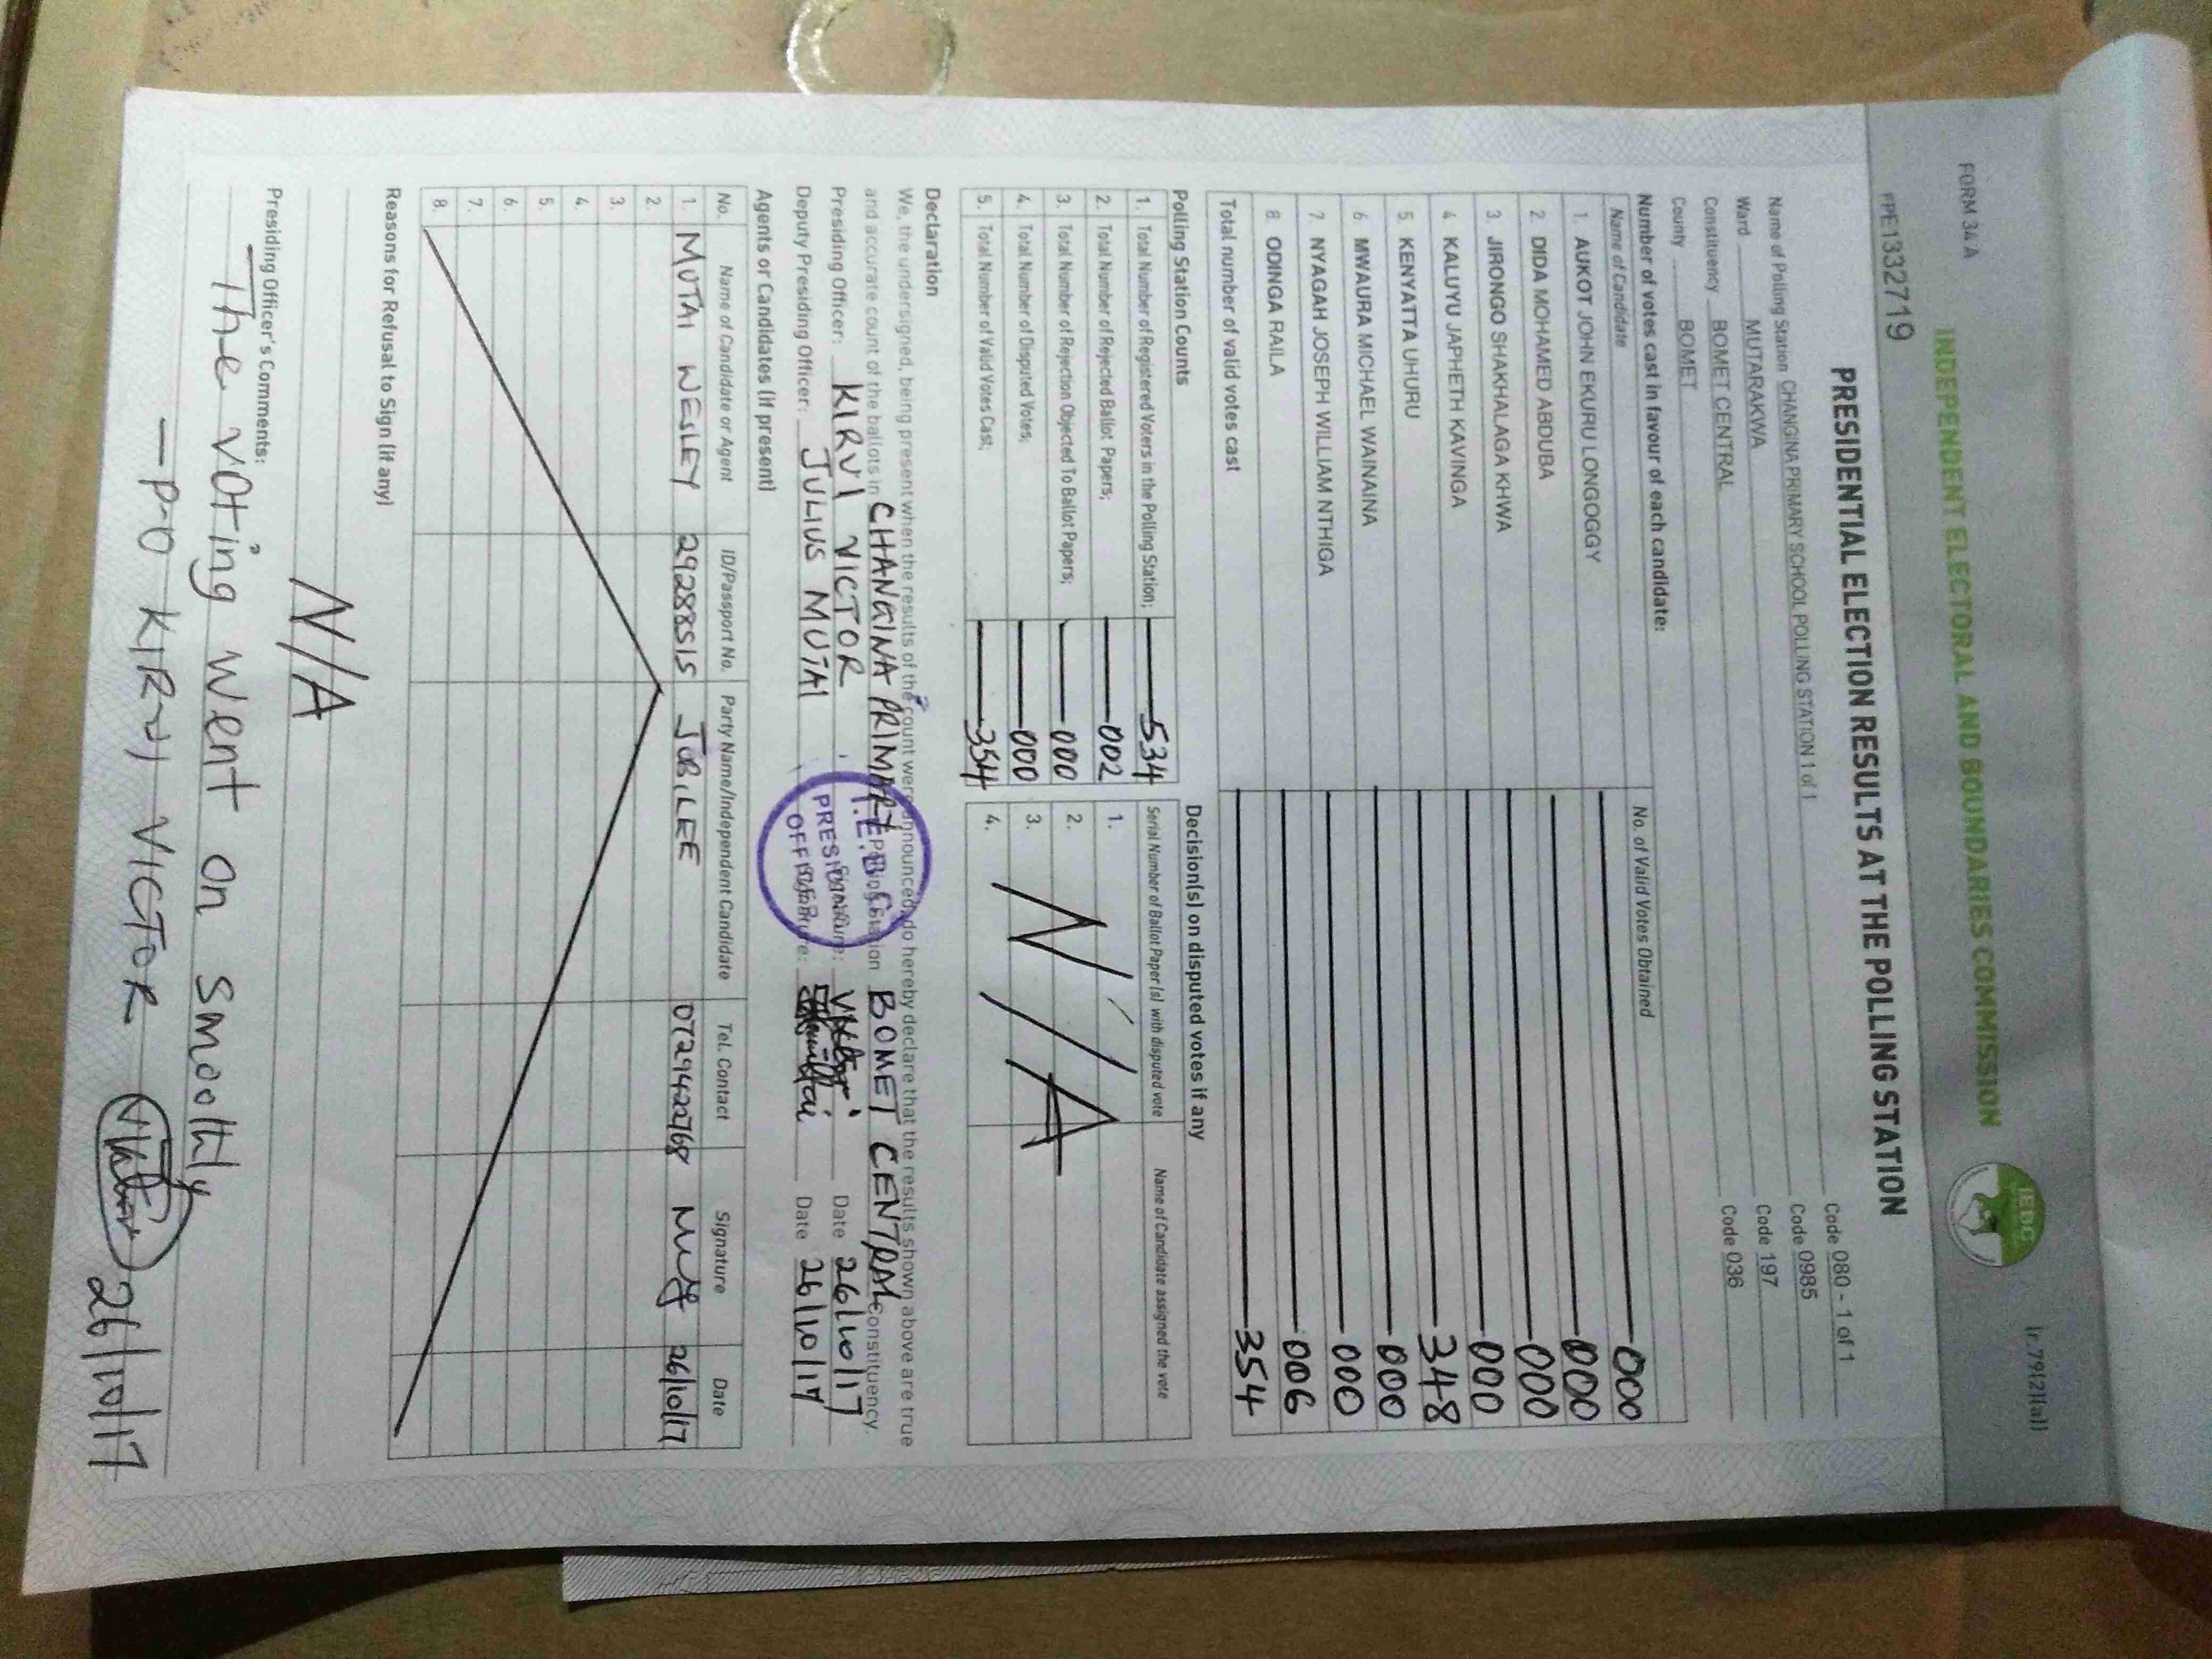 FORM 34 A
(r.79(2)(a))
INDEPENDENT ELECTORAL AND BOUNDARIES COMMISSION
IEBC
PPE1332719
PRESIDENTIAL ELECTION RESULTS AT THE POLLING STATION
Name of Polling Station CHANGINA PRIMARY SCHOOL POLLING STATION 1 of 1 Code 080 - 1 of 1
Ward MUTARAKWA Code 0985
Constituency BOMET CENTRAL Code 197
County BOMET Code 036
Number of votes cast in favour of each candidate:
Name of Candidate No. of Valid Votes Obtained
1. AUKOT JOHN EKURU LONGOGGY 000
2. DIDA MOHAMED ABDUBA 000
3. JIRONGO SHAKHALAGA KHWA 000
4 KALUYU JAPHETH KAVINGA 000
5 KENYATTA UHURU 348
6 MWAURA MICHAEL WAINAINA 000
7. NYAGAH JOSEPH WILLIAM NTHIGA 000
8. ODINGA RAILA 006
Total number of valid votes cast 354
Polling Station Counts
1. Total Number of Registered Voters in the Polling Station; 534
2. Total Number of Rejected Ballot Papers; 002
3. Total Number of Rejection Objected To Ballot Papers; 000
4. Total Number of Disputed Votes; 000
5. Total Number of Valid Votes Cast; 354
Decision(s) on disputed votes if any
Serial Number of Ballot Paper(s) with disputed vote Name of Candidate assigned the vote
1.
2.
3.
4.
N/A
Declaration
We, the undersigned, being present when the results of the count were announced, do hereby declare that the results shown above are true
and accurate count of the ballots in CHANGINA PRIMARY Polling Station BOMET CENTRAL Constituency.
Presiding Officer: KIRUI VICTOR Signature: Date 26/10/17
Deputy Presiding Officer: JULIUS MUTAI Signature: Date 26/10/17
I.E.B.C
PRESIDING
OFFICER
Agents or Candidates (if present)
No. Name of Candidate or Agent ID/Passport No. Party Name/Independent Candidate Tel. Contact Signature Date
1. MUTAI WESLEY 29288515 JUBILEE 0729422768 26/10/17
2.
3.
4.
5.
6.
7.
8.
Reasons for Refusal to Sign (if any)
N/A
Presiding Officer's Comments:
The voting went on smoothly
- P.O KIRUI VICTOR 26/10/17